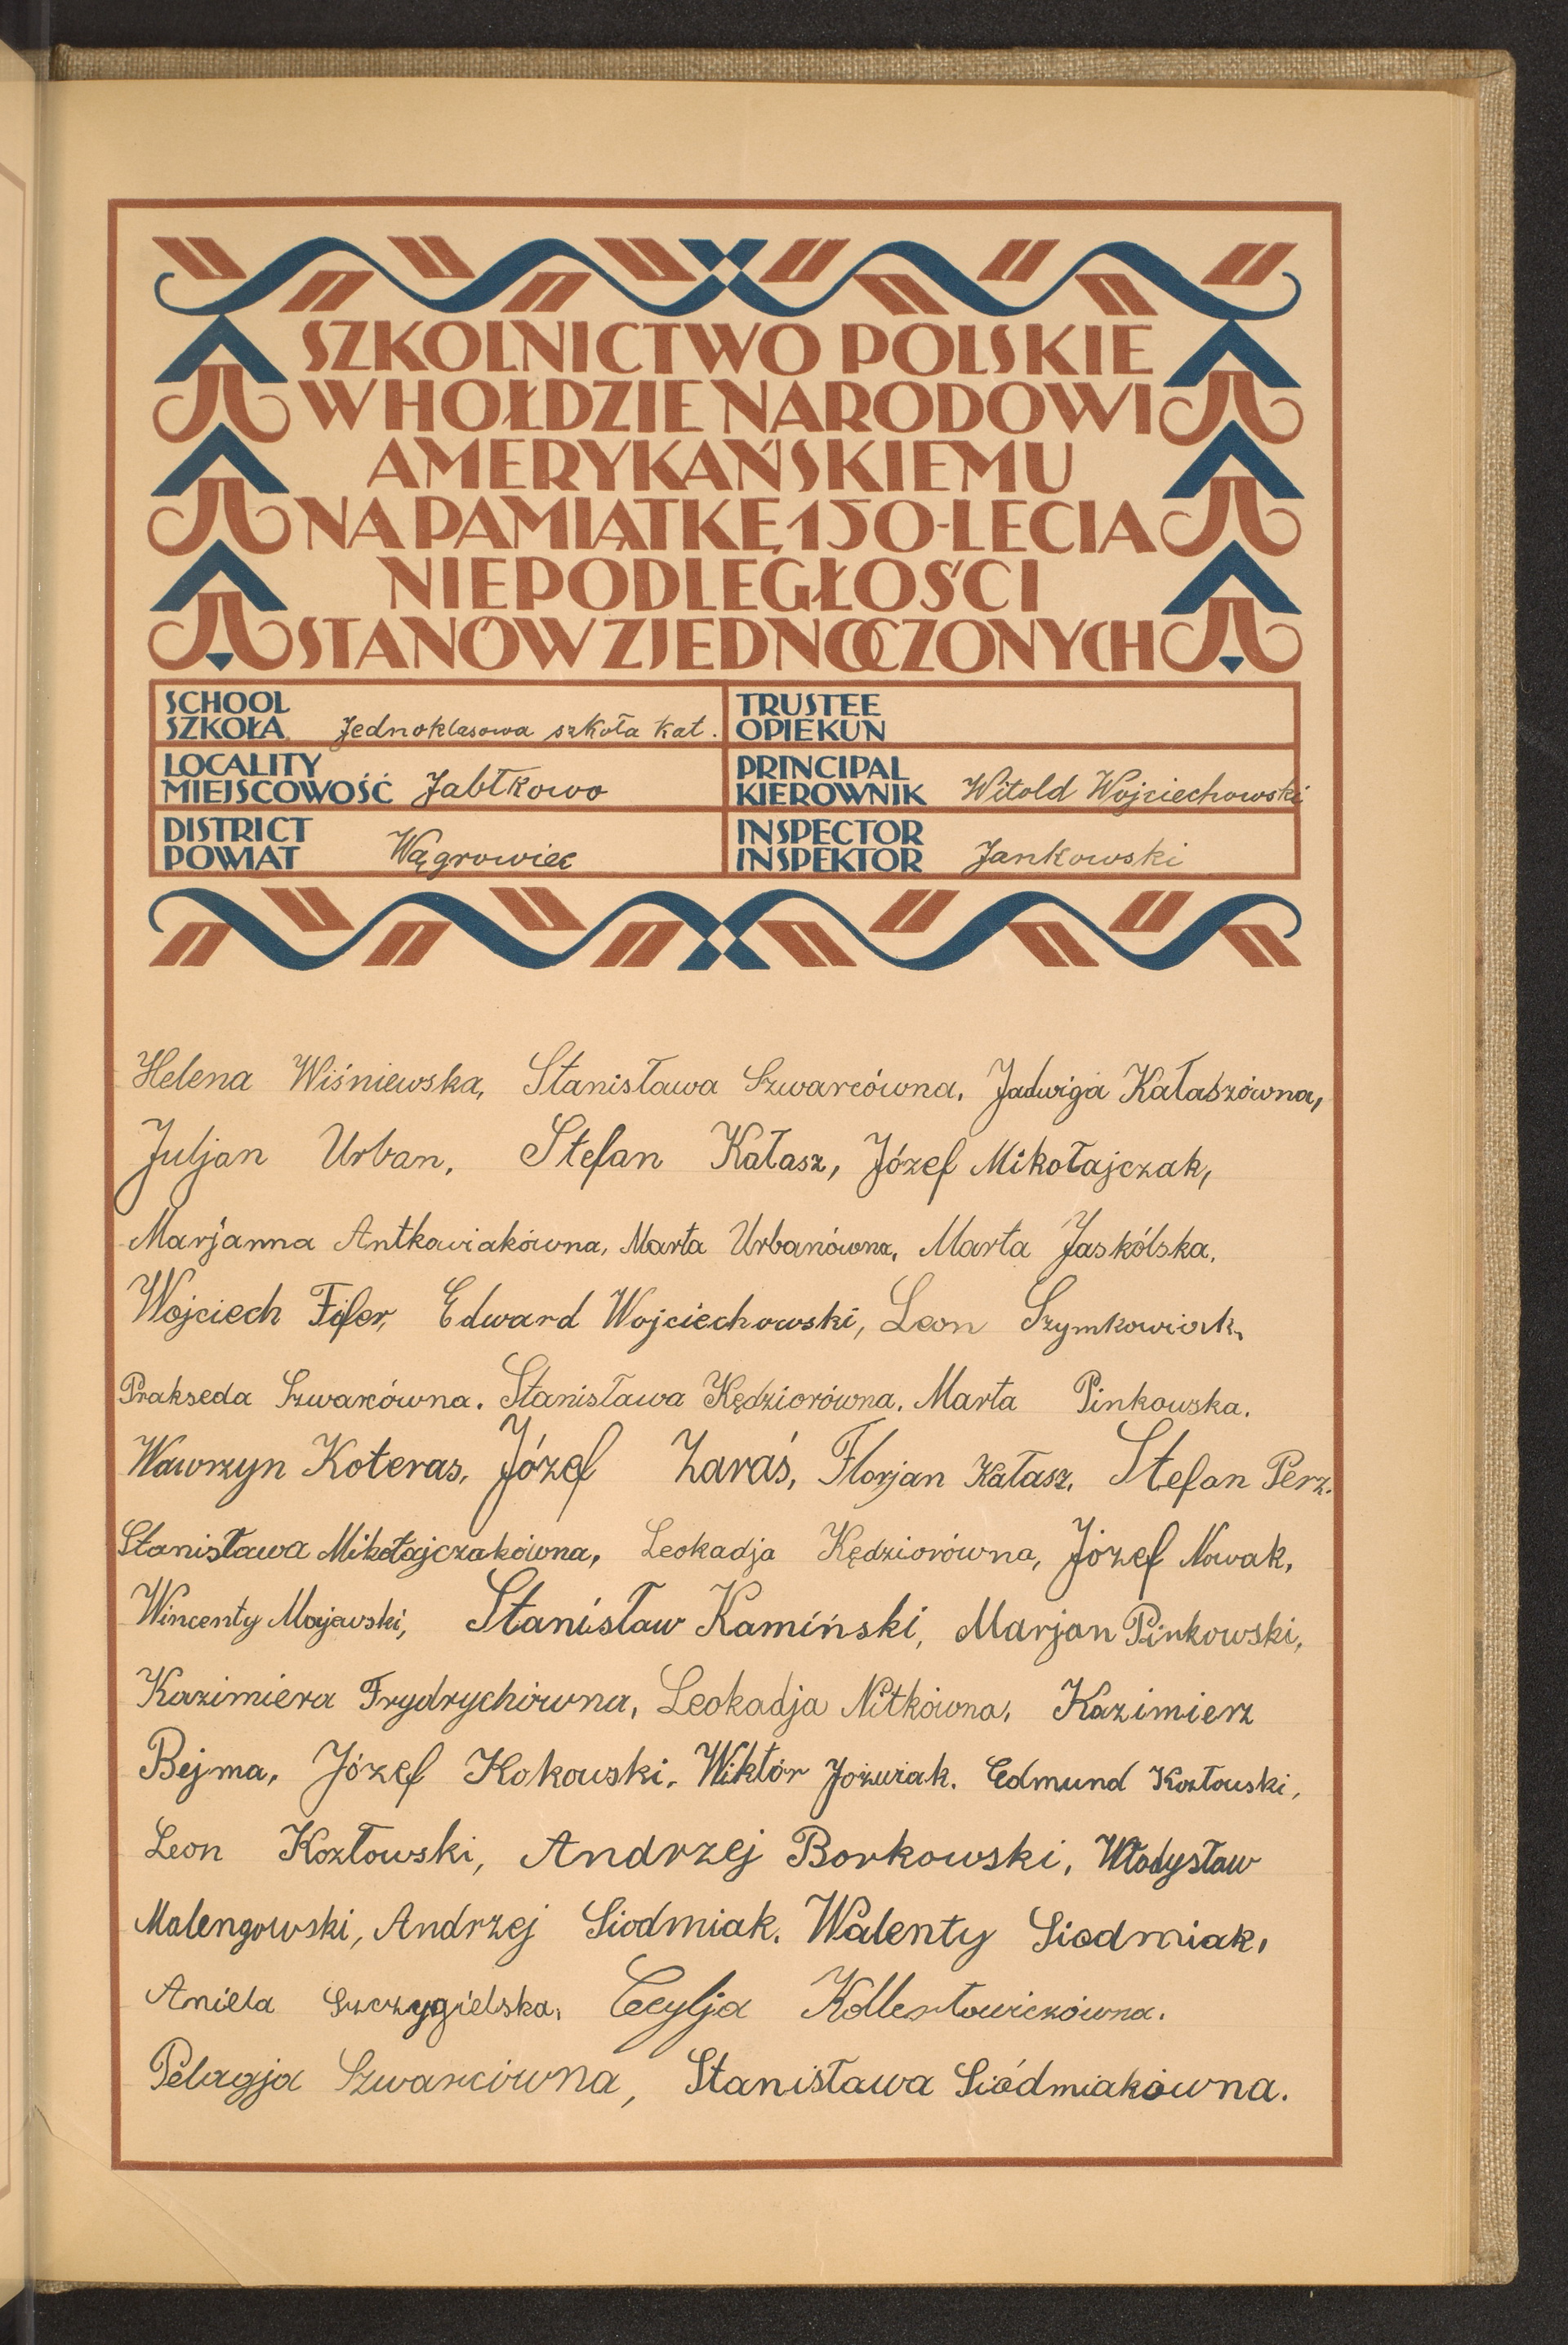 SZKOLNICTWO POLSKIE
W HOŁDZIE NARODOWI
AMERYKAŃSKIEMU
NA PAMIĄTKĘ 150-LECIA
NIEPODLEGŁOŚCI
STANÓW ZJEDNOCZONYCH
SCHOOL
SZKOŁA Jednoklasowa szkoła kat.
TRUSTEE
OPIEKUN
LOCALITY
MIEJSCOWOŚĆ Jabłkowo
PRINCIPAL
KIEROWNIK Witold Wojciechowski
DISTRICT
POWIAT Wągrowiec
INSPECTOR
INSPEKTOR Jankowski
Helena Wiśniewska, Stanisława Szwarcówna, Jadwiga Kałaszówna,
Juljan Urban, Stefan Kałasz, Józef Mikołajczak,
Marjanna Antkowiakówna, Marta Urbanówna, Marta Jaskólska.
Wojciech Fifer, Edward Wojciechowski, Leon Szymkowiak,
Prakseda Szwarcówna. Stanisława Kędziorówna. Marta Pinkowska.
Wawrzyn Koteras, Józef Zaraś, Florjan Kałasz, Stefan Perz.
Stanisława Mikołajczakówna, Leokadja Kędziorówna, Józef Nowak,
Wincenty Majewski, Stanisław Kamiński, Marjan Pinkowski,
Kazimiera Frydrychówna, Leokadja Nitkówna, Kazimierz
Bejma, Józef Kokowski, Wiktór Jozwiak. Edmund Kozłowski,
Leon Kozłowski, Andrzej Borkowski, Władysław
Malengowski, Andrzej Siodmiak. Walenty Siodmiak,
Aniela Szczygielska, Cecylja
Pelagja Szwarcówna, Stanisława Siódmiakówna.